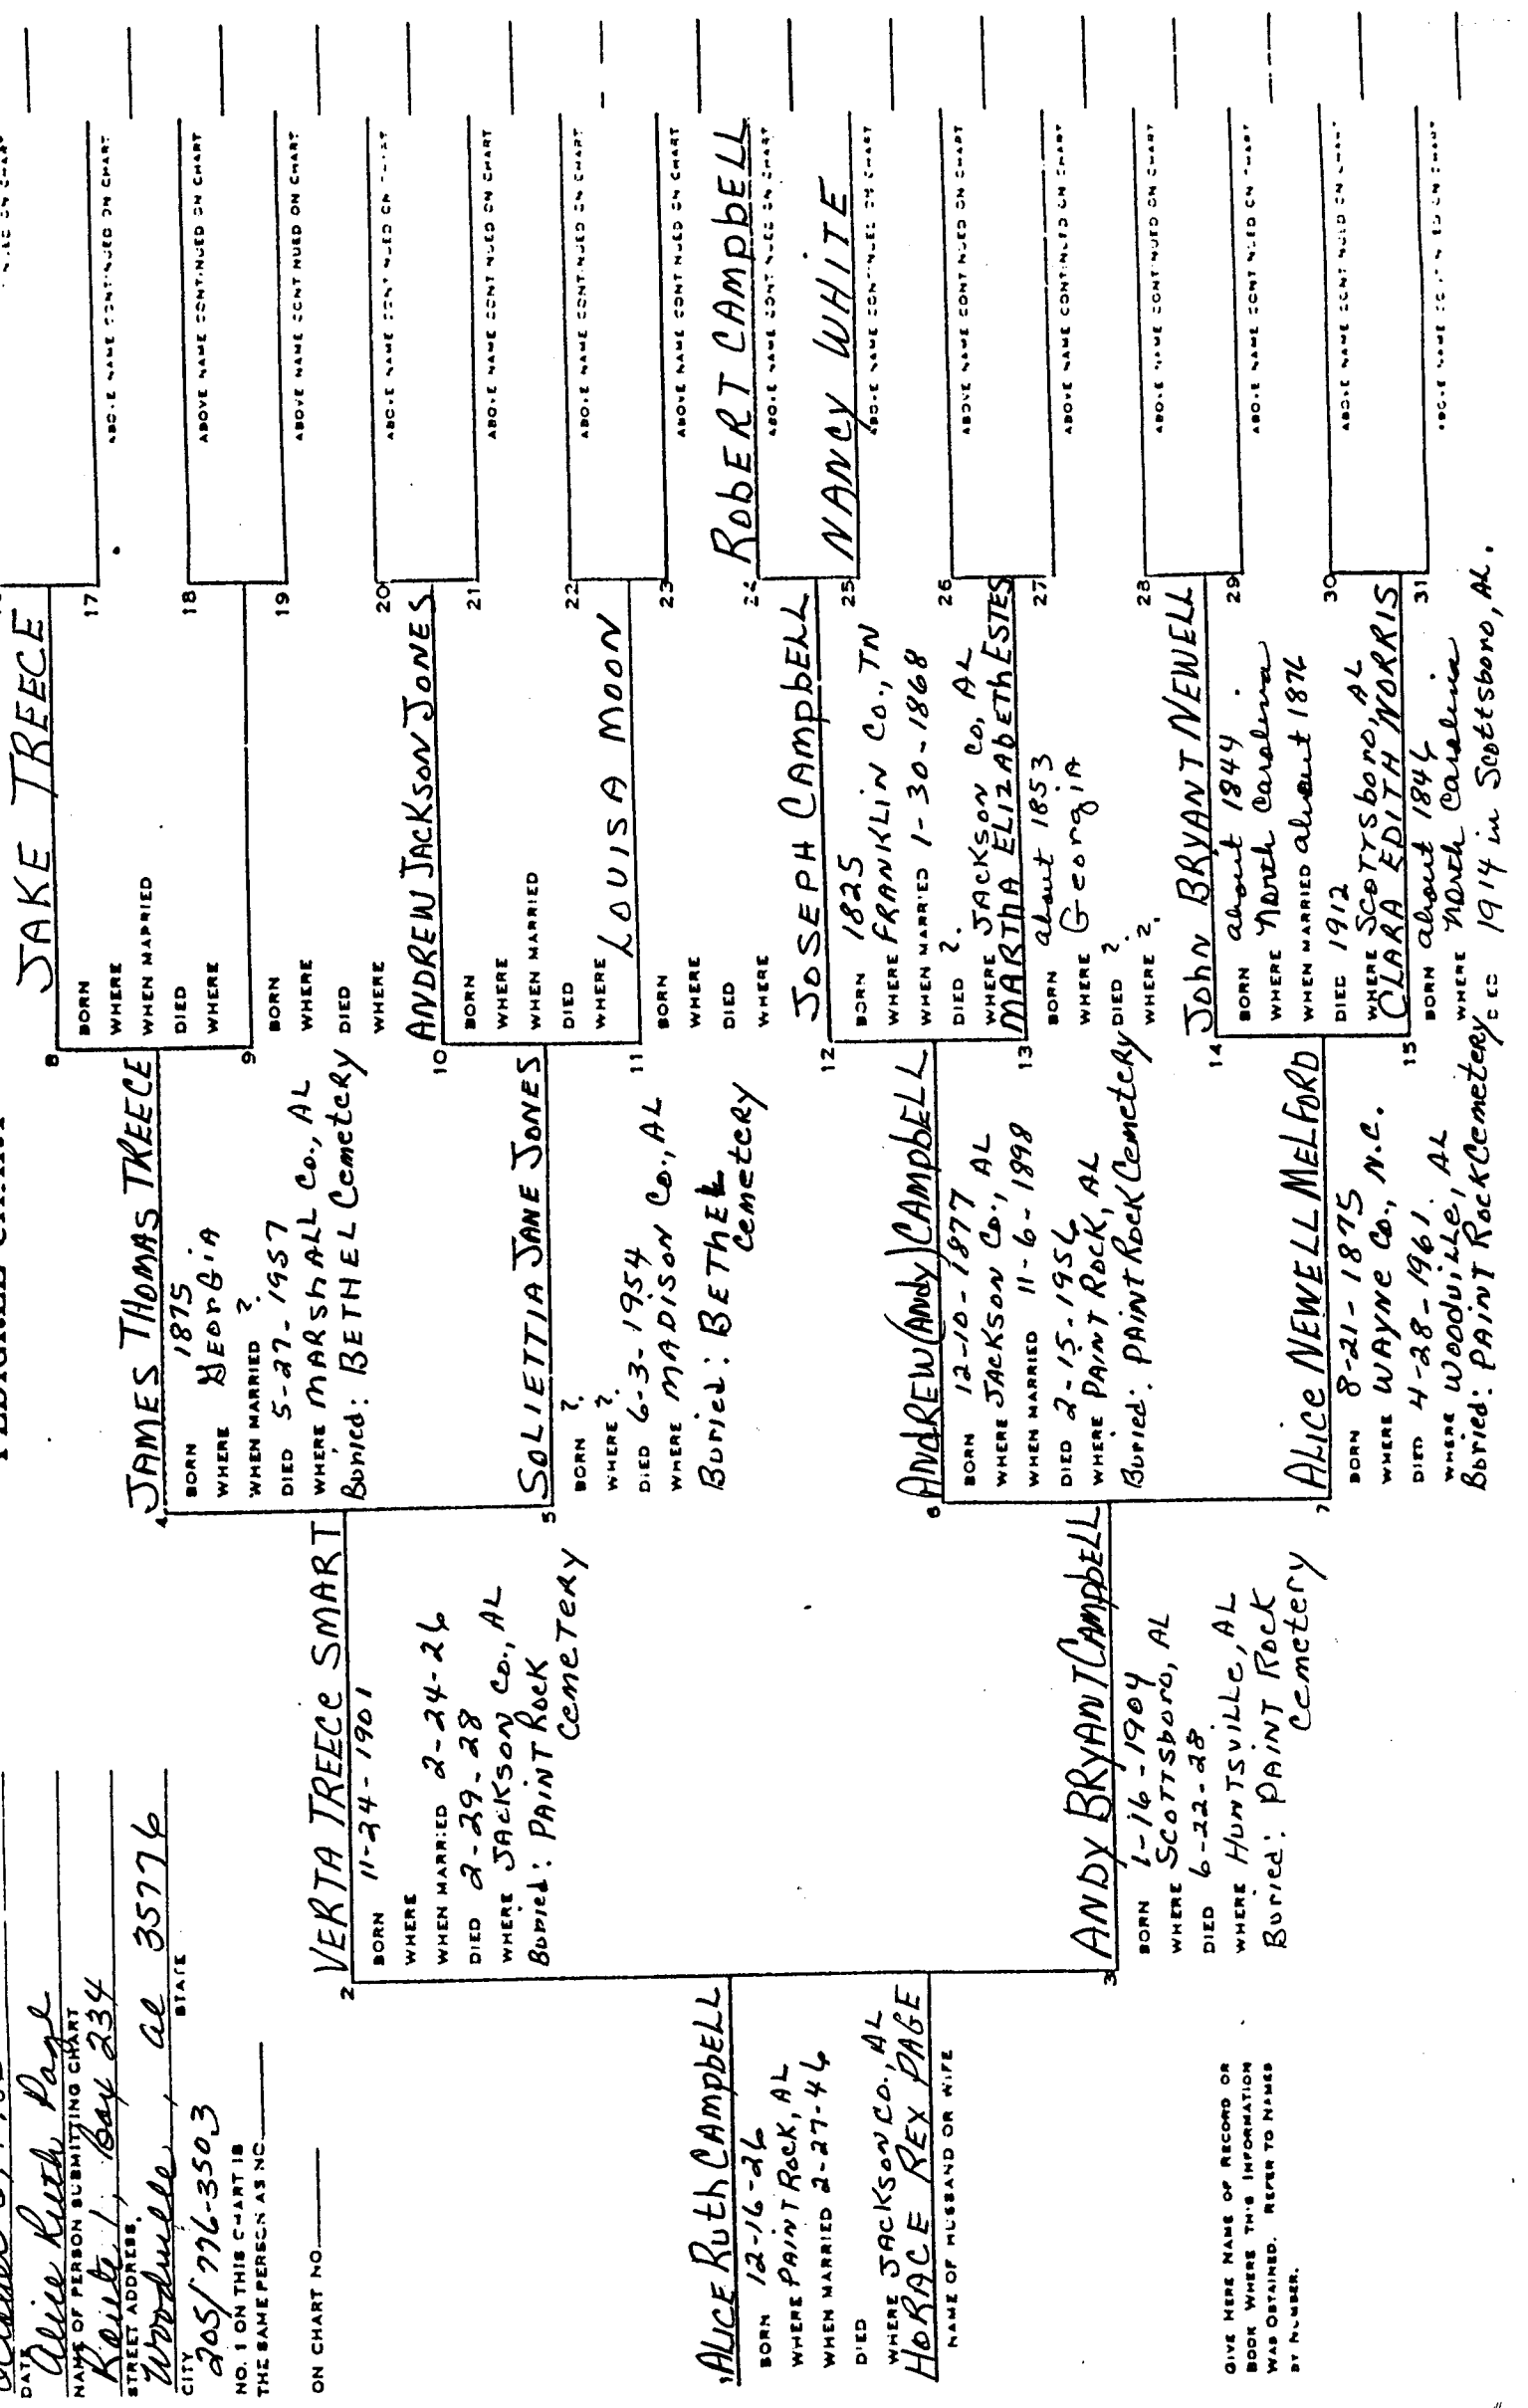 PEDIGREE CHART
DATE
Alice Ruth Page
NAME OF PERSON SUBMITTING CHART
Route 1, Box 234
STREET ADDRESS
Woodville, al 35776
CITY STATE
205/776-3503
NO. 1 ON THIS CHART IS
THE SAME PERSON AS NO.
ON CHART NO.
1 ALICE RUTH CAMPBELL
BORN 12-16-26
WHERE PAINT ROCK, AL
WHEN MARRIED 2-27-46
DIED
WHERE JACKSON CO., AL
HORACE REX PAGE
NAME OF HUSBAND OR WIFE
GIVE HERE NAME OF RECORD OR
BOOK WHERE THIS INFORMATION
WAS OBTAINED. REFER TO NAMES
BY NUMBER.
2 VERTA TREECE SMART
BORN 11-24-1901
WHERE
WHEN MARRIED 2-24-26
DIED 2-29-28
WHERE JACKSON CO., AL
Buried: PAINT ROCK
CEMETERY
3 ANDY BRYANT CAMPBELL
BORN 1-16-1904
WHERE SCOTTSboro, AL
DIED 6-22-28
WHERE HUNTSVILLE, AL
Buried: PAINT ROCK
Cemetery
4 JAMES THOMAS TREECE
BORN 1875
WHERE GEORGIA
WHEN MARRIED ?
DIED 5-27-1957
WHERE MARSHALL CO., AL
Buried: BETHEL Cemetery
5 SOLIETTIA JANE JONES
BORN ?
WHERE ?
DIED 6-3-1954
WHERE MADISON CO., AL
Buried: BETHEL
Cemetery
6 ANDREW (ANDY) CAMPBELL
BORN 12-10-1877
WHERE JACKSON CO., AL
WHEN MARRIED 11-6-1898
DIED 2-15-1956
WHERE PAINT ROCK, AL
Buried: PAINT ROCK Cemetery
7 ALICE NEWELL MELFORD
BORN 8-21-1875
WHERE WAYNE CO., N.C.
DIED 4-28-1961
WHERE Woodville, AL
Buried: PAINT ROCK Cemetery
8 JAKE TREECE
BORN
WHERE
WHEN MARRIED
DIED
WHERE
9
BORN
WHERE
DIED
WHERE
10 ANDREW JACKSON JONES
BORN
WHERE
WHEN MARRIED
DIED
WHERE
11 LOUISA MOON
BORN
WHERE
DIED
WHERE
12 JOSEPH CAMPBELL
BORN 1825
WHERE FRANKLIN CO., TN
WHEN MARRIED 1-30-1868
DIED ?
WHERE JACKSON CO, AL
13 MARTHA ELIZABETH ESTES
BORN about 1853
WHERE Georgia
DIED ?
WHERE ?
14 John BRYANT NEWELL
BORN about 1844
WHERE North Carolina
WHEN MARRIED about 1876
DIED 1912
WHERE SCOTTSboro, AL
15 CLARA EDITH NORRIS
BORN about 1846
WHERE North Carolina
DIED 1914 in Scottsboro, AL.
17
ABOVE NAME CONTINUED ON CHART
18
ABOVE NAME CONTINUED ON CHART
19
ABOVE NAME CONTINUED ON CHART
20
ABOVE NAME CONTINUED ON CHART
21
ABOVE NAME CONTINUED ON CHART
22
ABOVE NAME CONTINUED ON CHART
23
ABOVE NAME CONTINUED ON CHART
24 ROBERT CAMPBELL
ABOVE NAME CONTINUED ON CHART
25 NANCY WHITE
ABOVE NAME CONTINUED ON CHART
26
ABOVE NAME CONTINUED ON CHART
27
ABOVE NAME CONTINUED ON CHART
28
ABOVE NAME CONTINUED ON CHART
29
ABOVE NAME CONTINUED ON CHART
30
ABOVE NAME CONTINUED ON CHART
31
ABOVE NAME CONTINUED ON CHART